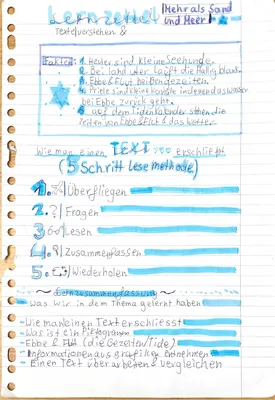 Lernzettel
Mehr als Sand
und Meer!
Text(verstehen &
Fakten:
1. Heuler sind kleine Seehunde.
2. Bei land unter läuft die Hallig
3. Ebbe & Flut beißen
4. Priele sind kleine in denen das wasser
bei Ebbe zurück geht.
5. auf dem Tidenkalender sthen die
zeiten von Ebbe & Flut & das
Wie man einen TEXT erschließt
(5 Schritt Lese methode)
1. Überfliegen
2. ?! Fragen
3. Lesen
4. Zusammenfassen
5. Wiederholen
~ Lernzusammenfassung ~
- Was wir in dem Thema gelernt haben
- Wie man einen Text erschliesst
- Was ist ein
- Ebbe & Flut (die Gezeiten/Tide)
- Informationen aus grafiken entnehmen
- Einen Text überarbeiten & vergleichen